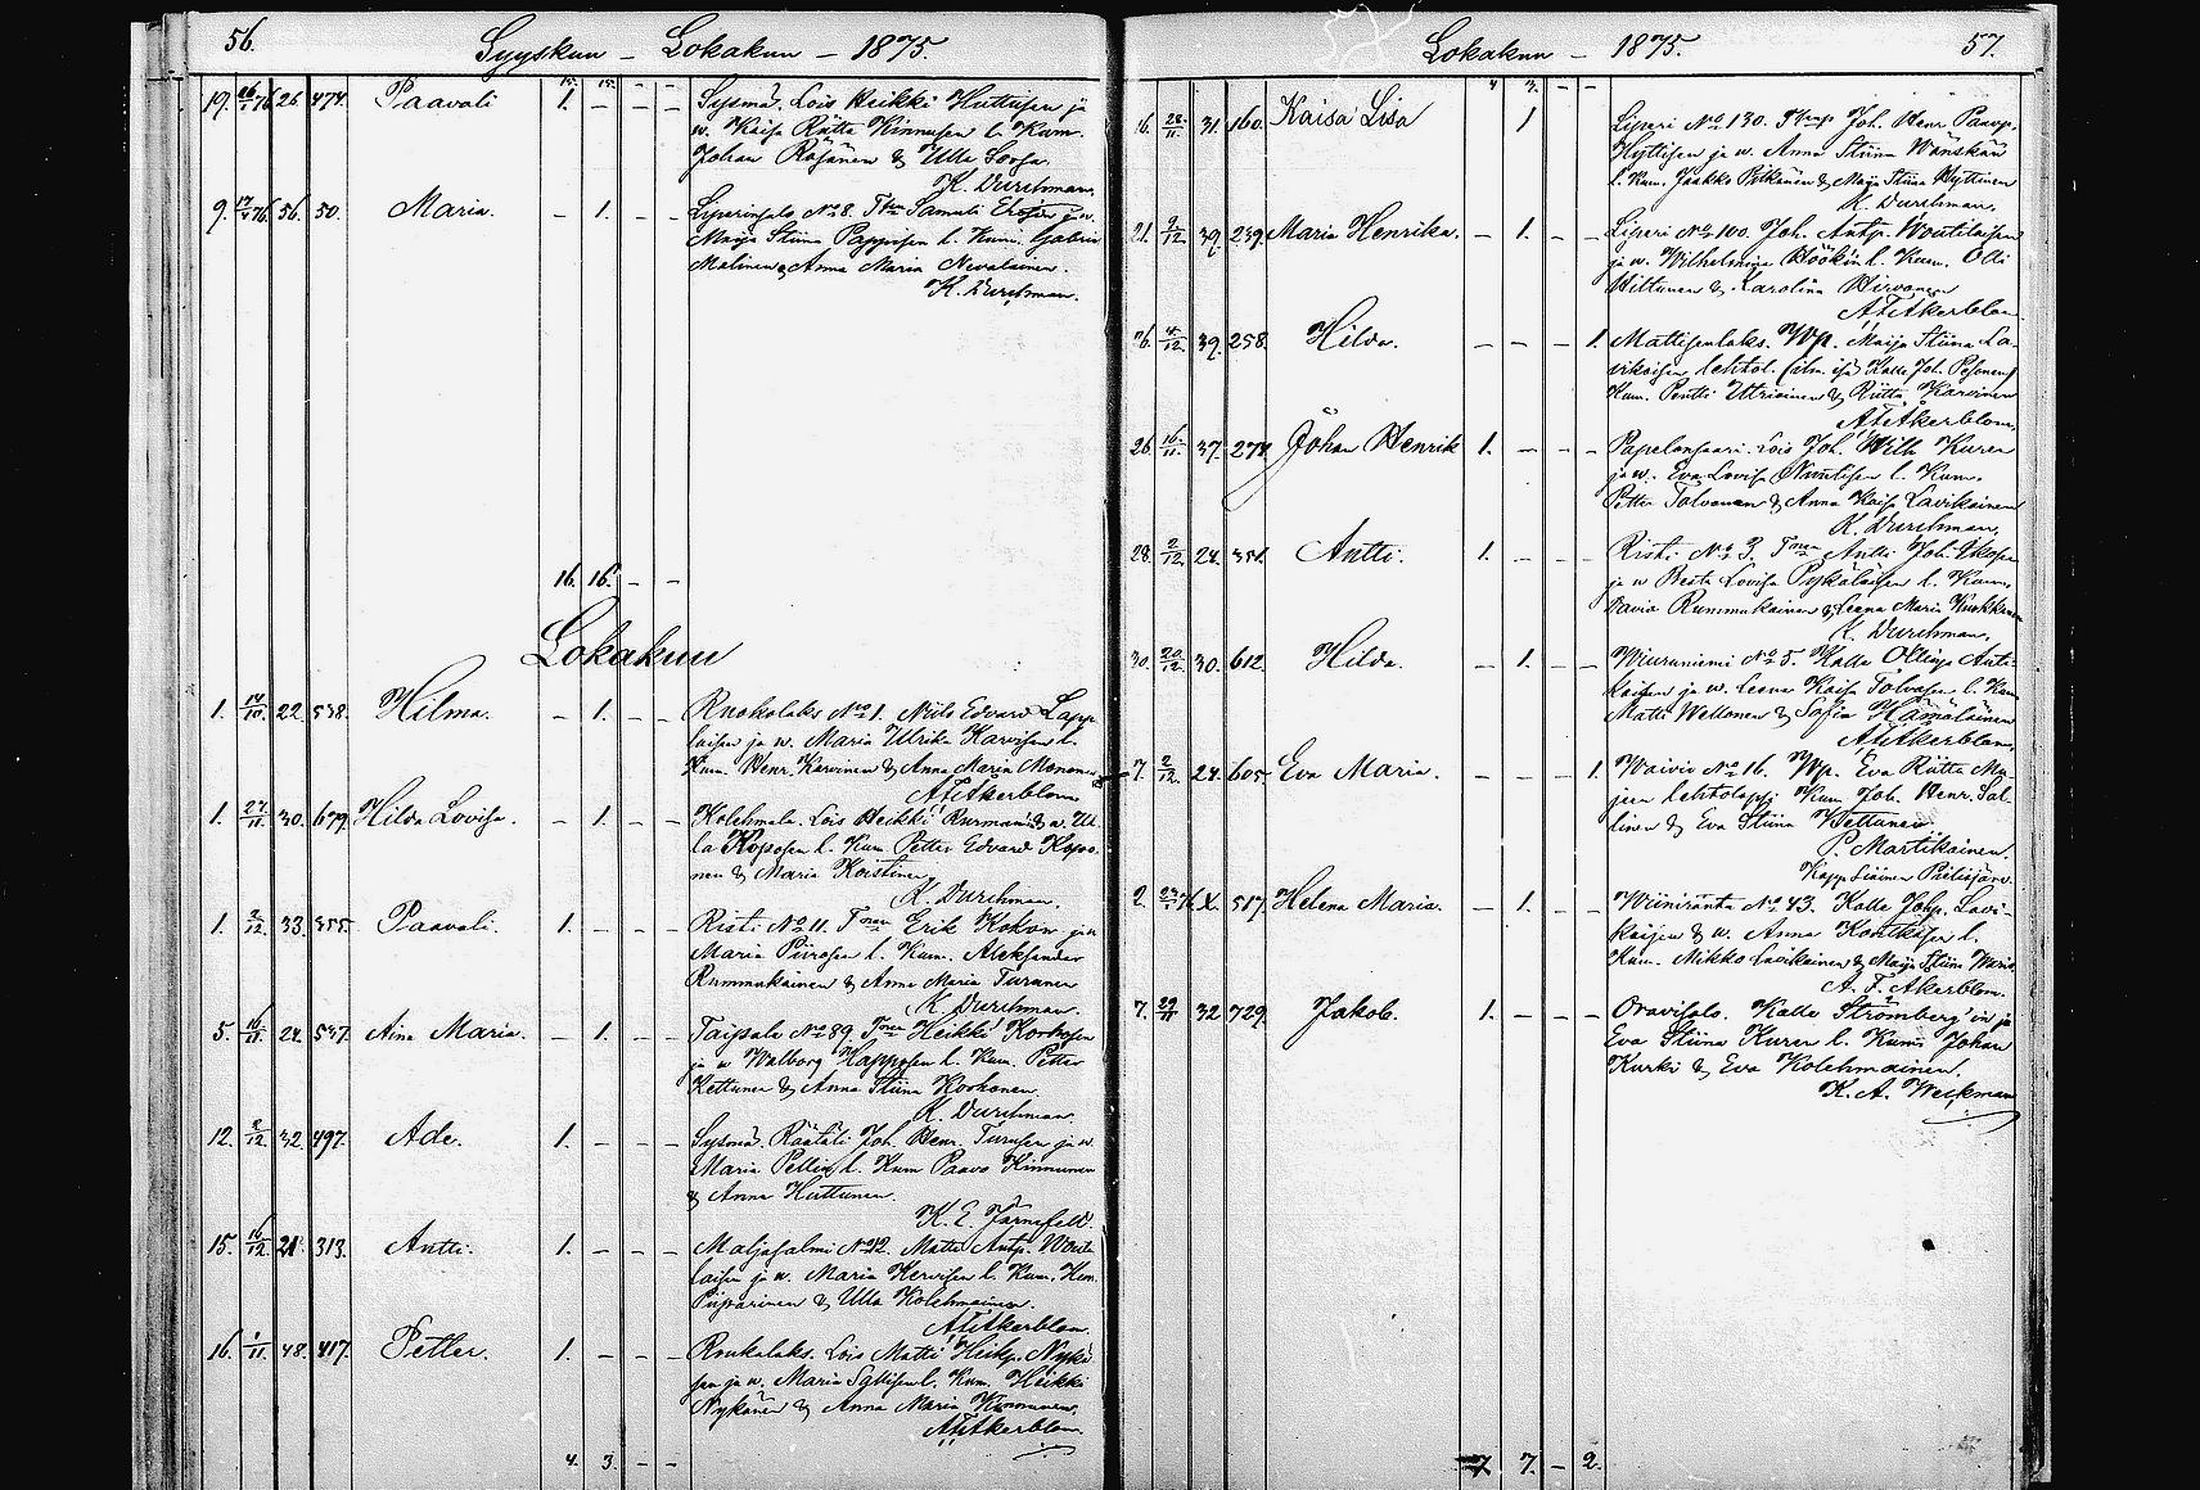 56.
Syyskuu – Lokakuu – 1875.
15. 15. – –
19. 26/1 76 26. 474. Paavali 1. – – – Sysmä. Lois Heikki Huttisen ja
w. Kaisa Riitta Kinnusen l. Kum.
Johan Räsänen & Ulla
K. Durchman.
9. 17/4 76. 56. 50. Maria. – 1. – – Liperinsalo No 8. Samuli ja w.
Maija Stiina Pappisen l. Kum. Gabriel
Malinen & Anna Maria Nevalainen.
K. Durchman.
16. 16. – –
Lokakuu
1. 14/10. 22. 538. Hilma. – 1. – – Ruokolaks No 1. Niilo Edvard Lapp
laisen ja w. Maria Ulrika Karvisen l.
Kum. Henr. Karvinen & Anna Maria Mononen
A F Åkerblom
1. 27/11. 30. 679. Hilda Lovisa. – 1. – – Kolehmala. Lois Heikki Rurman & w. Ul
la Koposen l. Kum Petter Edvard Kopo
nen & Maria Koistinen
K. Durchman.
1. 2/12. 33. 355. Paavali. 1. – – – Risti No 11. Erik Kokon ja w
Maria Piirosen l. Kum. Aleksander
Rummukainen & Anna Maria Turunen
K. Durchman.
5. 16/11. 24. 537. Aina Maria. – 1. – – Taipale No 89. Heikki Korhosen
ja w Walborg Happosen l. Kum. Petter
Kettunen & Anna Stiina Korhonen.
K. Durchman.
12. 2/12 32. 497. Ade. 1. – – – Sysmä. Räätäli Joh. Henr. Turusen ja w.
Maria Pellin l. Kum Paavo Kinnunen
& Anna Huttunen.
K. E. Järnefelt.
15. 16/12. 21. 313. Antti. 1. – – – Maljasalmi No 12. Matti Antp. Wouti
laisen ja w. Maria Kervisen l. Kum. Hen.
Piiparinen & Ulla Kolehmainen.
A F Åkerblom.
16. 1/11. 48. 417. Petter. 1. – – – Roukalaks. Lois Matti Heikp. Nykä
sen ja w. Maria l. Kum. Heikki
Nykänen & Anna Maria Kinnunen.
A F Åkerblom.
4. 3. – –
Lokakuu – 1875. 57.
4 3. – –
16. 28/11. 31. 160. Kaisa Lisa 1 Liperi No 130. Joh. Henr Paavp.
Hyttisen ja w. Anna Stiina Wänskän
l. Kum. Jaakko Pitkänen & Maija Stiina Hyttinen
K. Durchman.
21. 9/12 39. 239. Maria Henrika. – 1. – – Liperi No 100. Joh. Antp. Woutilaisen
ja w. Wilhelmina Höök'in l. Kum. Olli
Hiltunen & Karolina Hirvonen
A F Åkerblom.
4/12. 39. 258. Hilda. – – – 1. Mattisenlaks. Wp. Maija Stiina La-
vikaisen lehtol. (ilm. isä Kalle Joh. Pesonen)
Kum. Pentti Utriainen & Riitta Karvinen
A F Åkerblom.
26. 16/11. 37. 274. Johan Henrik 1. – – – Papelonsaari. Lois Joh. Wilh Kuren
ja w. Eva Lovisa Nuutisen l. Kum.
Petter Tolvanen & Anna Kaisa Lavikainen
K. Durchman.
28. 2/12. 24. 351. Antti. 1. – – – Risti No 3. Antti Joh.
ja w Beata Lovisa Pykäläisen l. Kum.
David Rummukainen & Leena Maria
K. Durchman.
30. 20/12. 30. 612. Hilda. – 1. – – Wiuruniemi No 5. Kalle Ollinp Anti-
kaisen ja w. Leena Kaisa Tolvasen l. Kum
Matti Weltonen & Sofia Hämäläinen
A F Åkerblom.
7. 2/12. 24. 605. Eva Maria. – – – 1. Waivio No 16. Wp. Eva Riitta Mu-
jeen lehtolapsi Kum Joh. Henr. Sal-
linen & Eva Stiina Kettunen.
P. Martikainen.
Kapp Pielisjärv.
2. 76 X. 517. Helena Maria. – 1. – – Wiiniranta No 43. Kalle Johp. Lavi-
kaisen & w. Anna Kontkasen l.
Kum. Mikko Lavikainen & Maija Stiina
A. F. Åkerblom.
7. 29/11 32 729. Jakob. 1. – – – Oravisalo. Kalle Strömberg'in ja
Eva Stiina Kuren l. Kum Johan
Kurki & Eva Kolehmainen.
K. A. Weckman
7 7. – 2.